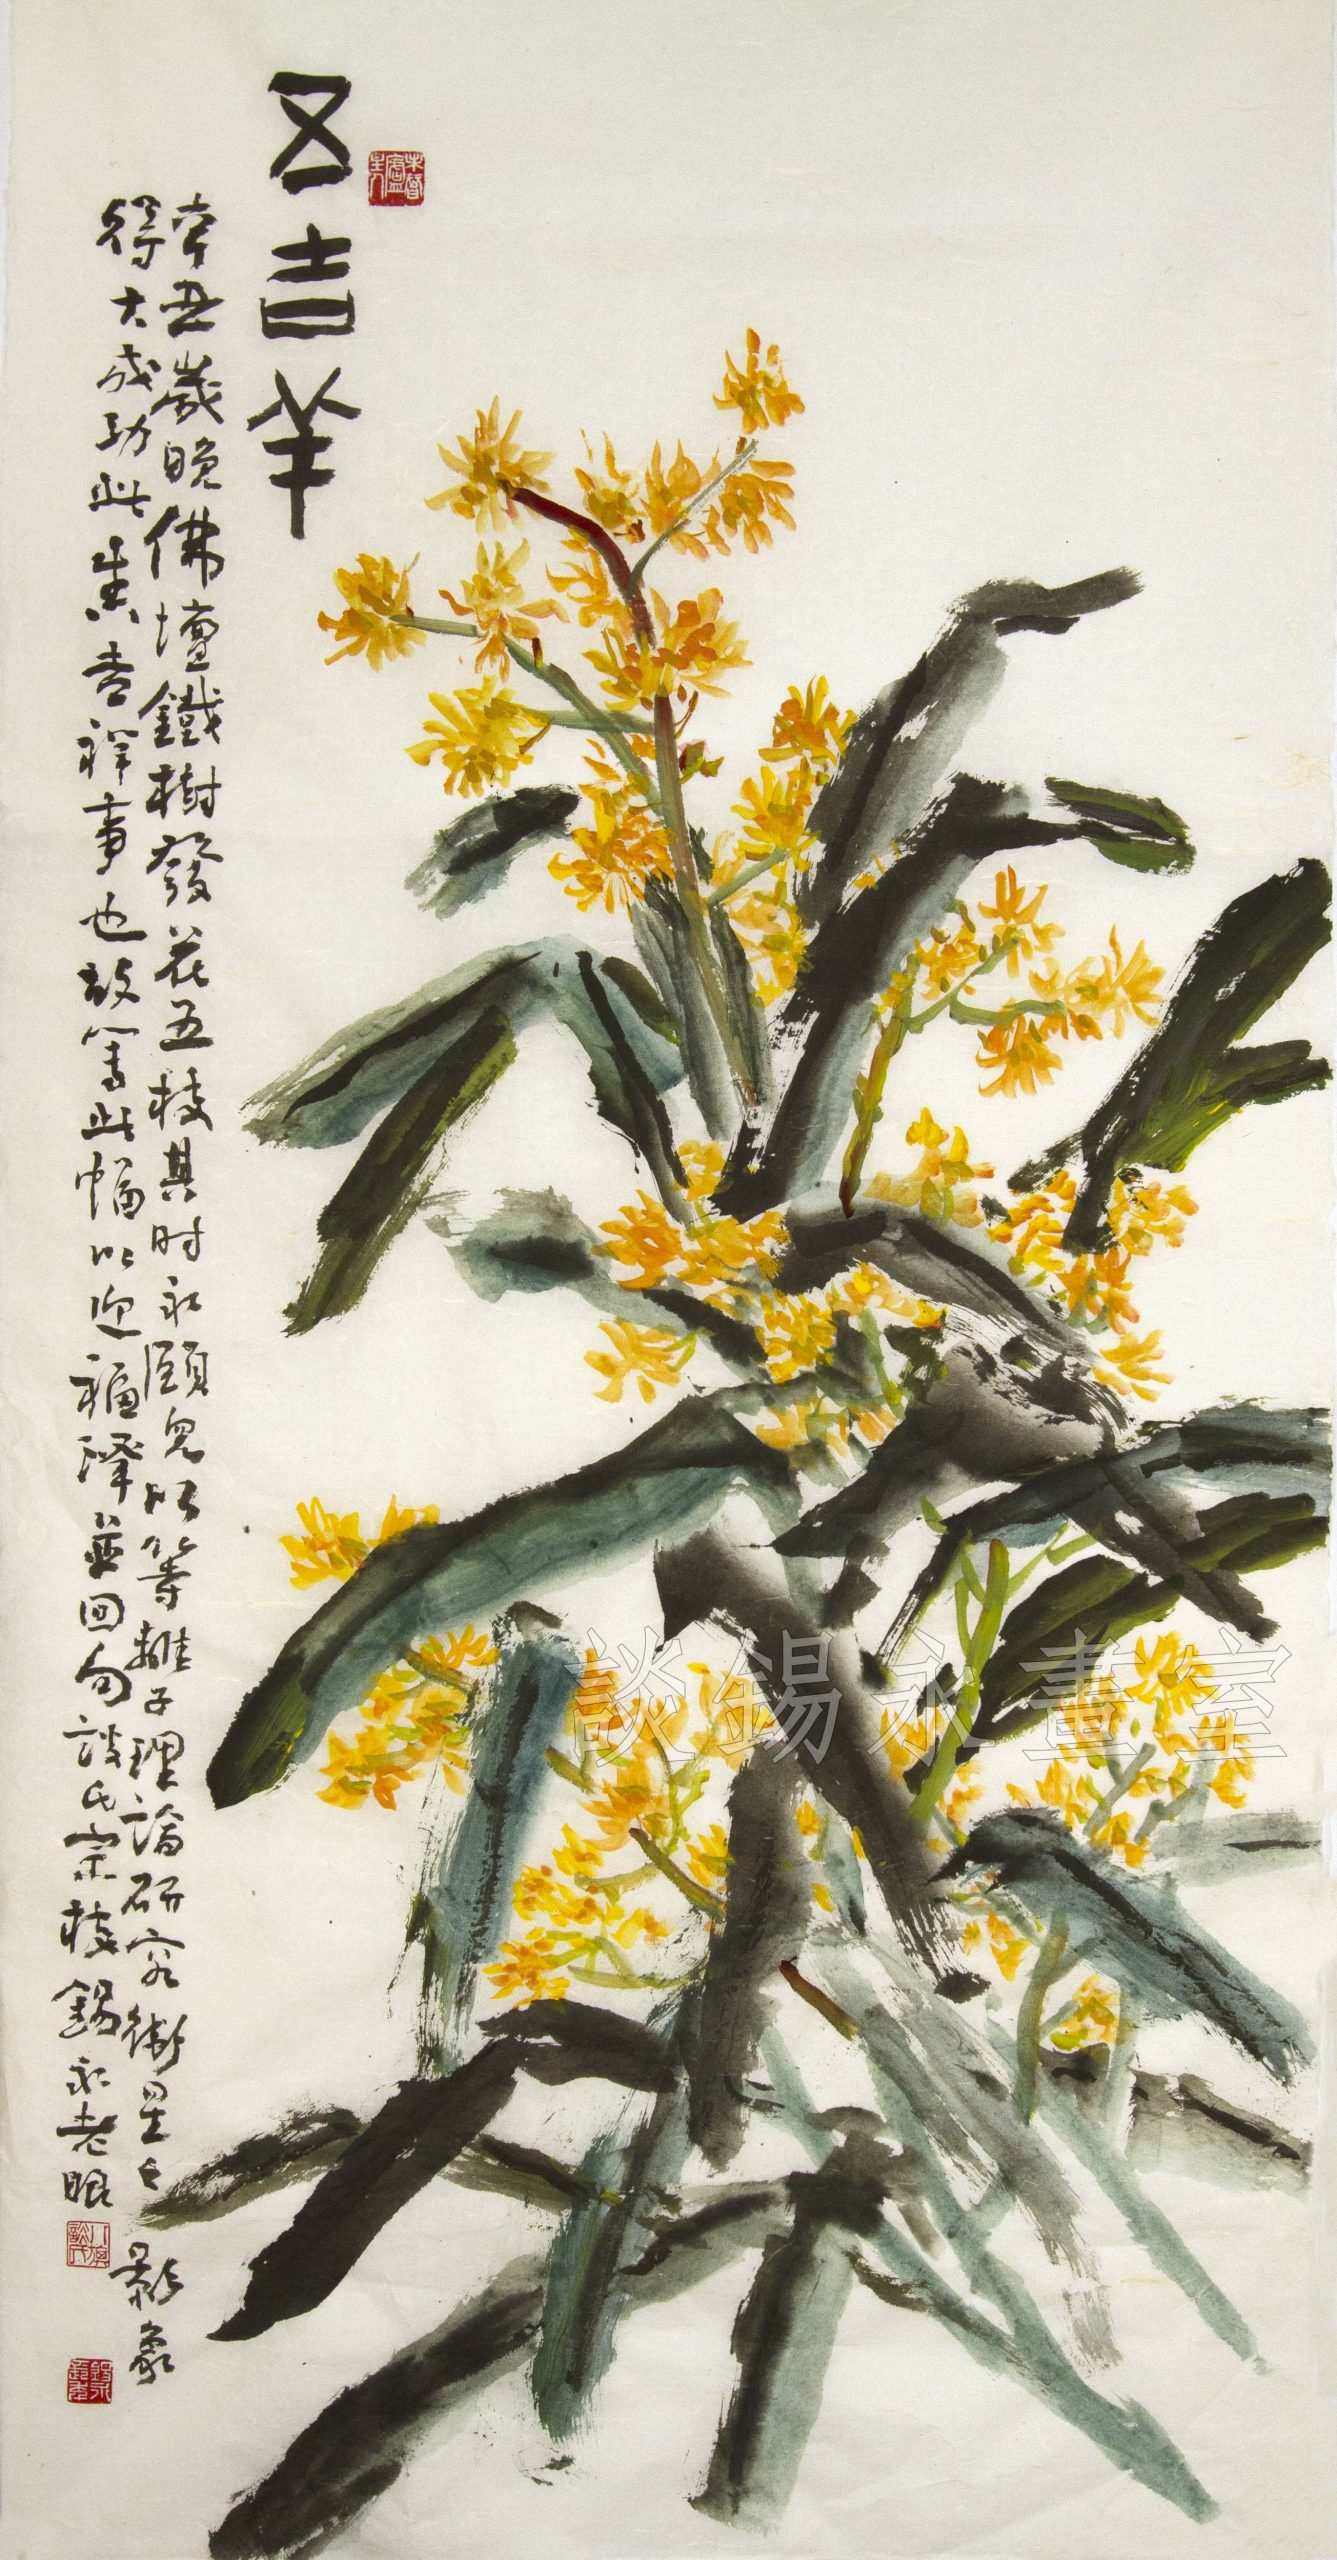 五吉羊
辛丑歲晚佛壇鐵樹發花五枝其時永頤兒以等離子理論研究衛星之影象
得大成功此真吉祥事也故寫此幅以迎福澤並回向談氏宗枝錫永老眼
談錫永畫室